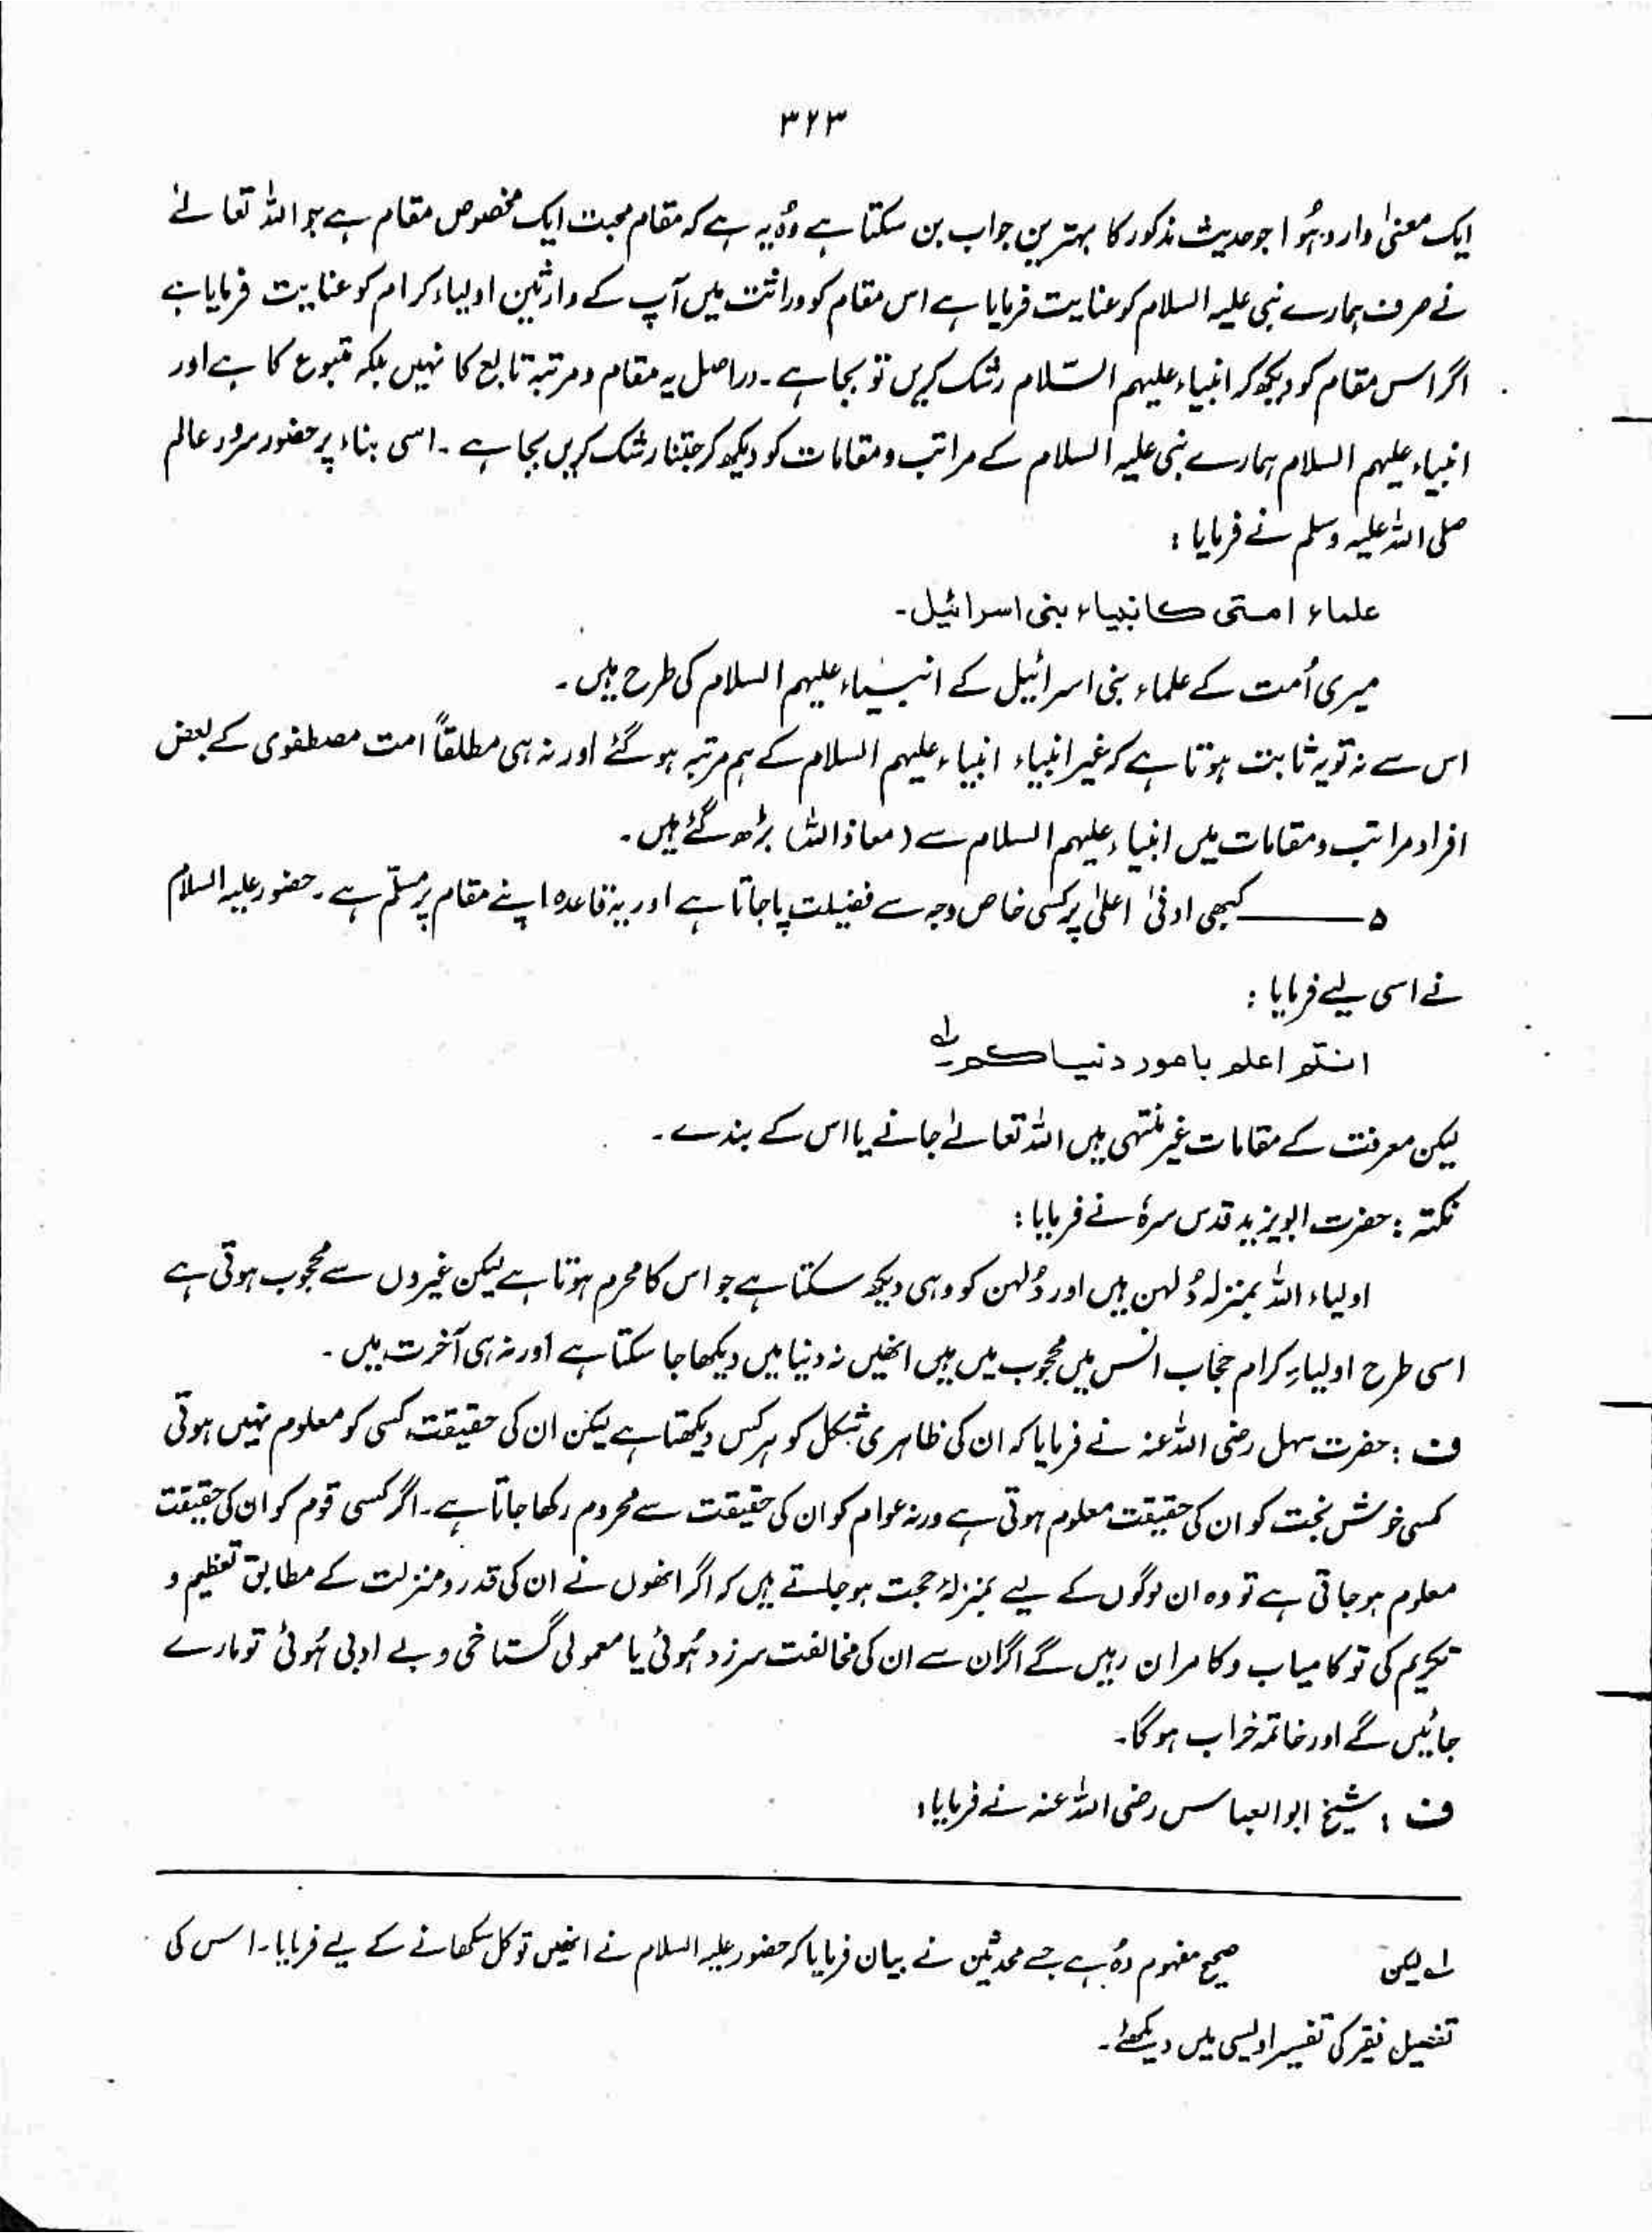 ۳۲۳
ایک معنیٰ وارد ہُوا جو حدیث مذکور کا بہترین جواب بن سکتا ہے وُہ یہ ہے کہ مقام محبت ایک مخصوص مقام ہے جو اللہ تعالےٰ
نے صرف ہمارے نبی علیہ السلام کو عنایت فرمایا ہے اس مقام کو وراثت میں آپ کے وارثین اولیاء کرام کو عنایت فرمایا ہے
اگر اس مقام کو دیکھ کر انبیاء علیہم السّلام رشک کریں تو بجا ہے ۔ دراصل یہ مقام و مرتبہ تابع کا نہیں بلکہ متبوع کا ہے اور
انبیاء علیہم السلام ہمارے نبی علیہ السلام کے مراتب و مقامات کو دیکھ کر جتنا رشک کریں بجا ہے ۔ اسی بناء پر حضور سرور عالم
صلی اللہ علیہ وسلم نے فرمایا :
علماء امتی کانبیاء بنی اسرائیل۔
میری اُمت کے علماء بنی اسرائیل کے انبیاء علیہم السلام کی طرح ہیں ۔
اس سے نہ تو یہ ثابت ہوتا ہے کہ غیر انبیاء انبیاء علیہم السلام کے ہم مرتبہ ہو گئے اور نہ ہی مطلقاً امت مصطفوی کے بعض
افراد مراتب و مقامات میں انبیاء علیہم السلام سے (معاذ اللہ) بڑھ گئے ہیں ۔
۵ ــــــ کبھی ادنیٰ اعلیٰ پر کسی خاص وجہ سے فضیلت پا جاتا ہے اور یہ قاعدہ اپنے مقام پر مسلّم ہے ۔ حضور علیہ السلام
نے اسی لیے فرمایا :
انتم اعلم بامور دنیاکم۔ لہ
لیکن معرفت کے مقامات غیر منتہی ہیں اللہ تعالےٰ جانے یا اس کے بندے ۔
نکتہ : حضرت ابویزید قدس سرہٗ نے فرمایا :
اولیاء اللہ بمنزلہ دُلہن ہیں اور دُلہن کو وہی دیکھ سکتا ہے جو اس کا محرم ہوتا ہے لیکن غیروں سے محجوب ہوتی ہے
اسی طرح اولیاءِ کرام حجاب انس میں محجوب میں ہیں انھیں نہ دنیا میں دیکھا جا سکتا ہے اور نہ ہی آخرت میں ۔
ف : حضرت سہل رضی اللہ عنہ نے فرمایا کہ ان کی ظاہری شکل کو ہر کس دیکھتا ہے لیکن ان کی حقیقت کسی کو معلوم نہیں ہوتی
کسی خوش بخت کو ان کی حقیقت معلوم ہوتی ہے ورنہ عوام کو ان کی حقیقت سے محروم رکھا جاتا ہے ۔ اگر کسی قوم کو ان کی حقیقت
معلوم ہو جاتی ہے تو وہ ان لوگوں کے لیے بمنزلۂ حجت ہو جاتے ہیں کہ اگر انھوں نے ان کی قدر و منزلت کے مطابق تعظیم و
تکریم کی تو کامیاب و کامران رہیں گے اگر ان سے ان کی مخالفت سرزد ہُوئی یا معمولی گستاخی و بے ادبی ہُوئی تو مارے
جائیں گے اور خاتمہ خراب ہو گا۔
ف : شیخ ابوالعباس رضی اللہ عنہ نے فرمایا :
لہ لیکن صحیح مفہوم وُہ ہے جسے محدثین نے بیان فرمایا کہ حضور علیہ السلام نے انھیں توکل سکھانے کے لیے فرمایا ۔ اس کی
تفصیل فقیر کی تفسیر اویسی میں دیکھئے ۔